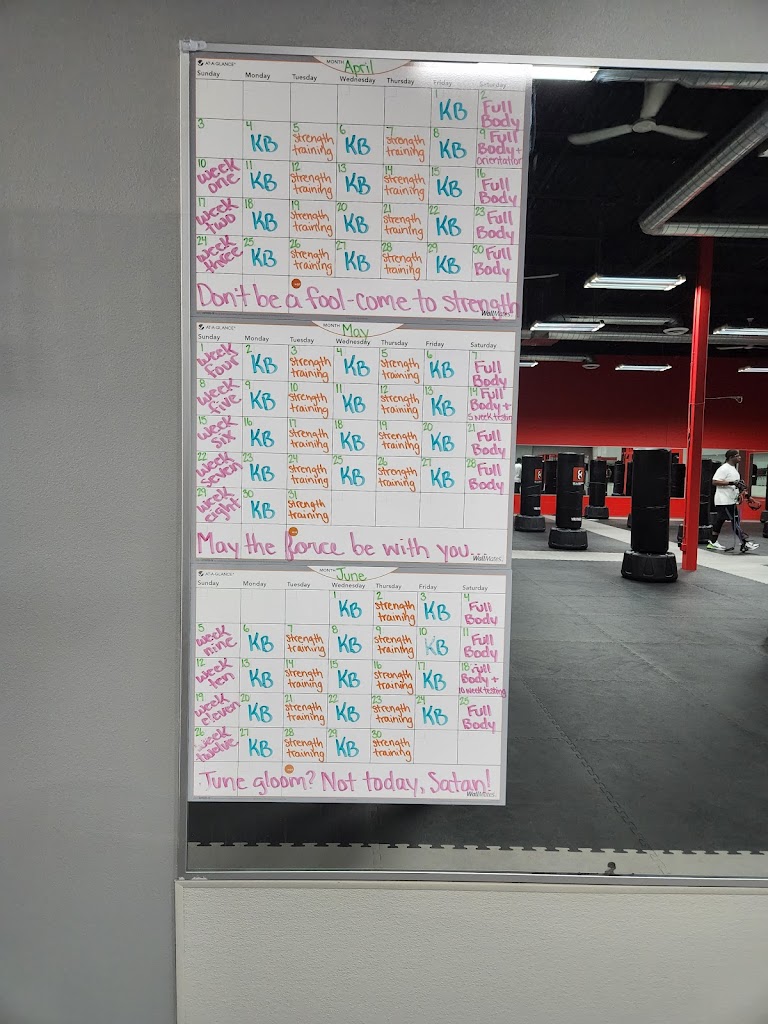 AT-A-GLANCE MONTH April
Sunday Monday Tuesday Wednesday Thursday Friday Saturday
1 2
KB Full Body
3 4 5 6 7 8 9
KB strength training KB strength training KB Full Body + orientation
10 11 12 13 14 15 16
week one KB strength training KB strength training KB Full Body
17 18 19 20 21 22 23
week two KB strength training KB strength training KB Full Body
24 25 26 27 28 29 30
week three KB strength training KB strength training KB Full Body
Don't be a fool-come to strength
WallMates
AT-A-GLANCE MONTH May
Sunday Monday Tuesday Wednesday Thursday Friday Saturday
1 2 3 4 5 6 7
week four KB strength training KB strength training KB Full Body
8 9 10 11 12 13 14
week five KB strength training KB strength training KB Full Body + 5 week testing
15 16 17 18 19 20 21
week six KB strength training KB strength training KB Full Body
22 23 24 25 26 27 28
week seven KB strength training KB strength training KB Full Body
29 30 31
week eight KB strength training
May the force be with you...
WallMates
AT-A-GLANCE MONTH June
Sunday Monday Tuesday Wednesday Thursday Friday Saturday
1 2 3 4
KB strength training KB Full Body
5 6 7 8 9 10 11
week nine KB strength training KB strength training KB Full Body
12 13 14 15 16 17 18
week ten KB strength training KB strength training KB Full Body + 10 week testing
19 20 21 22 23 24 25
week eleven KB strength training KB strength training KB Full Body
26 27 28 29 30
week twelve KB strength training KB strength training
June gloom? Not today, Satan!
WallMates